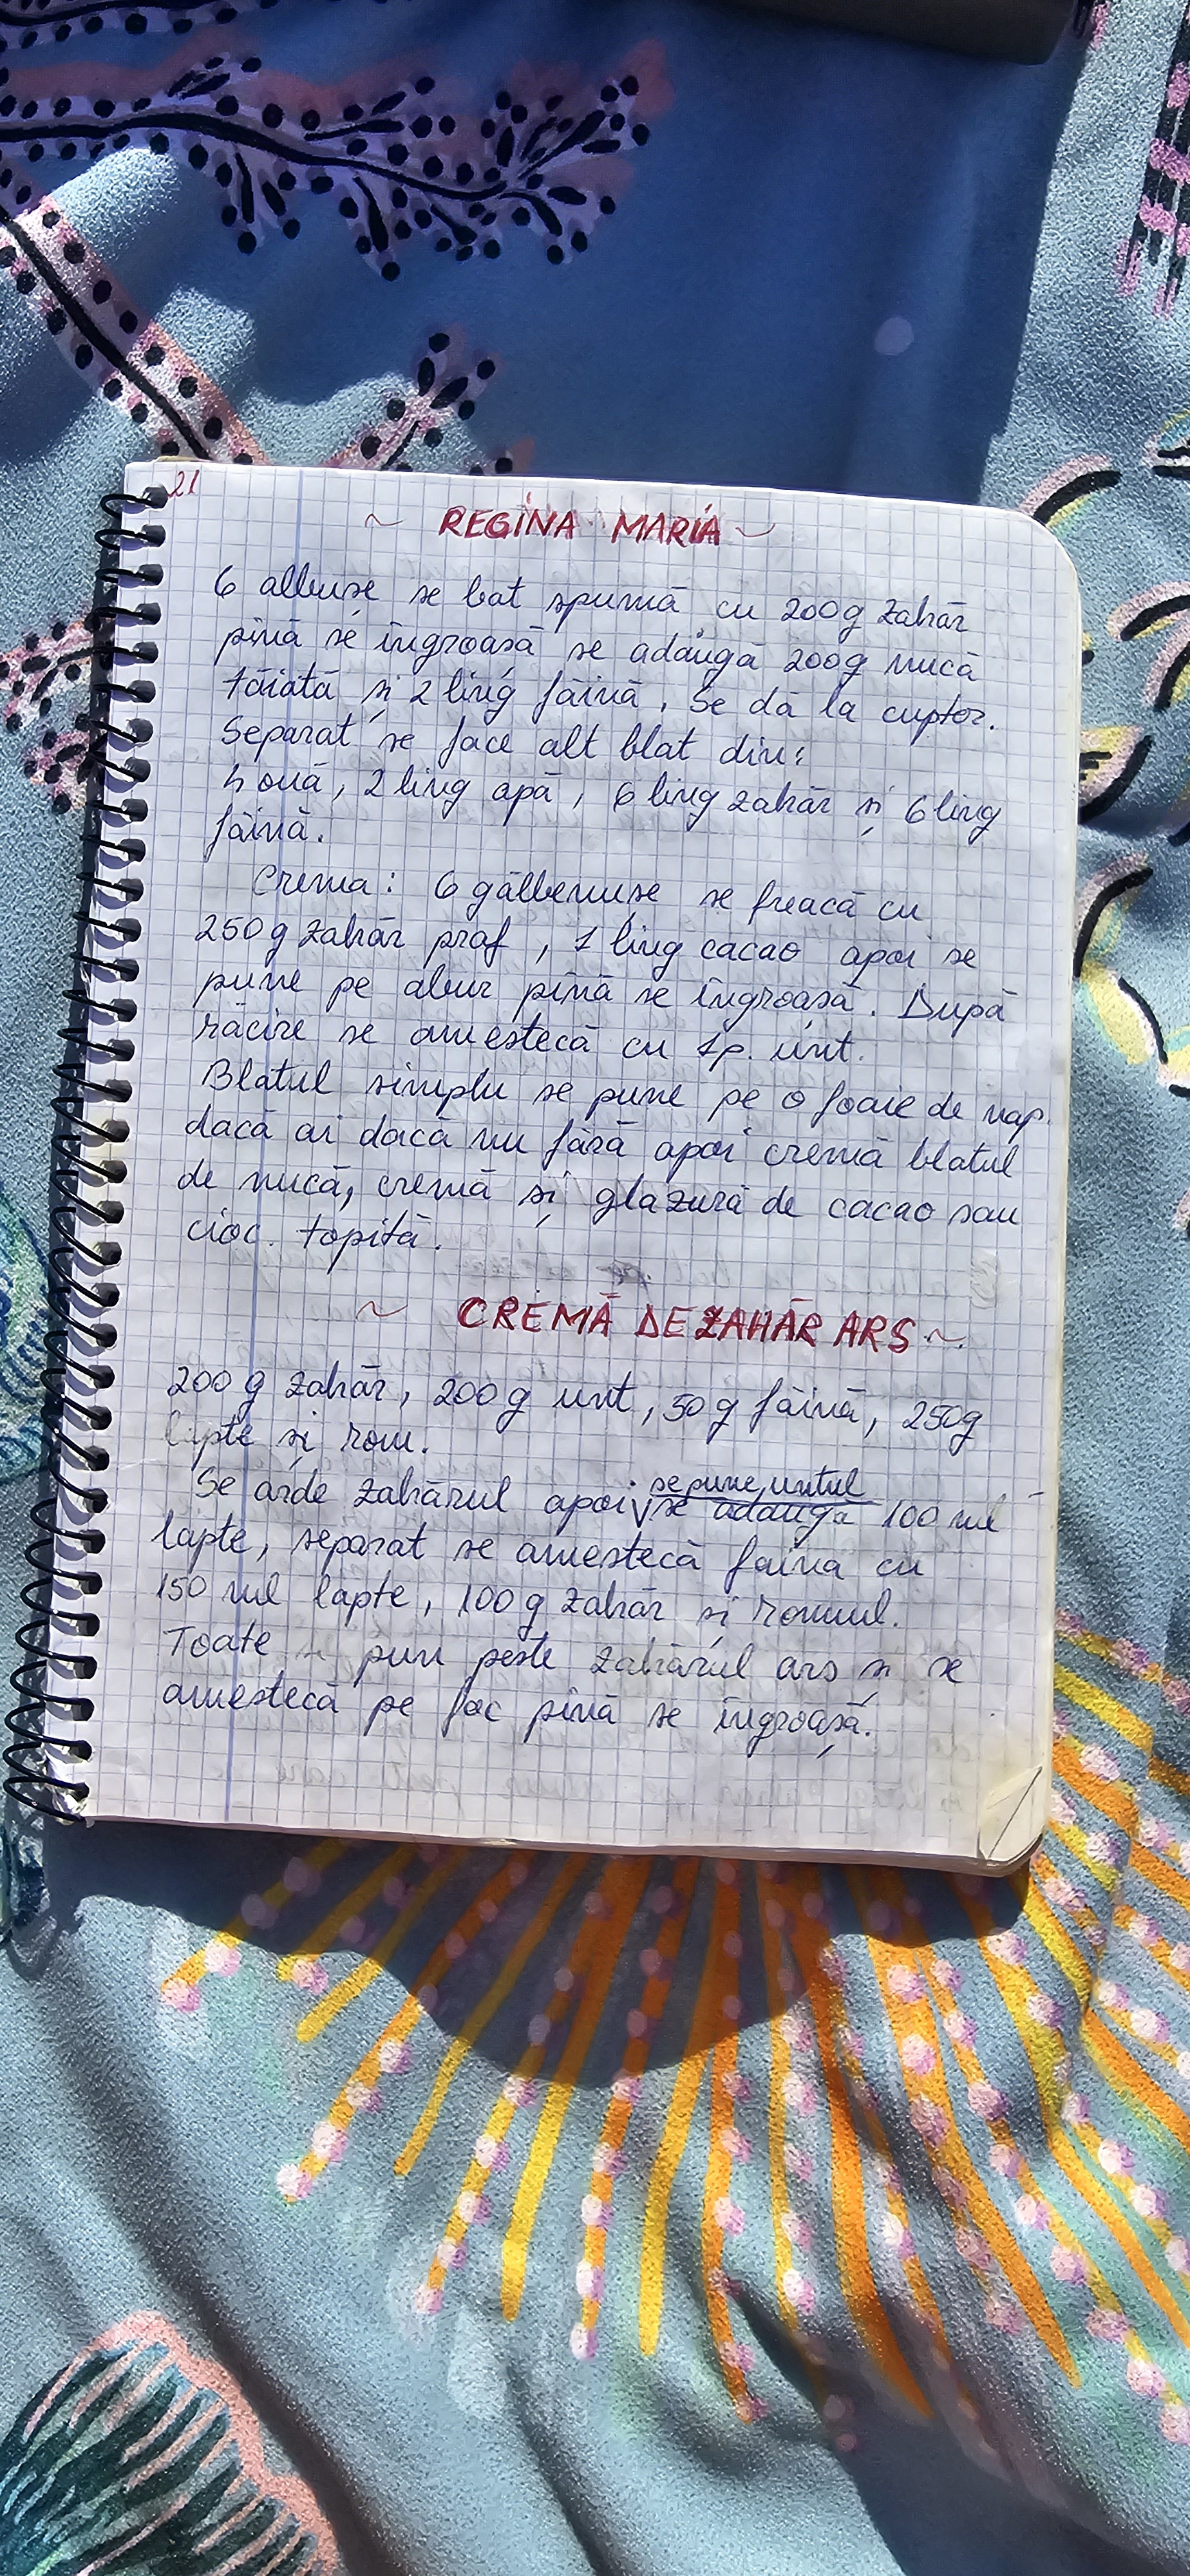 21
~ REGINA MARIA ~
6 albușe se bat spumă cu 200g zahăr
pînă se îngroașă se adaugă 200g nucă
tăiată și 2 ling făină. Se dă la cuptor.
Separat se face alt blat din:
4 ouă, 2 ling apă, 6 ling zahăr și 6 ling
făină.
Crema: 6 gălbenușe se freacă cu
250g zahăr praf, 1 ling cacao apoi se
pune pe abur pînă se îngroașă. După
răcire se amestecă cu 1p. unt.
Blatul simplu se pune pe o foaie de nap.
dacă ai dacă nu fără apoi cremă blatul
de nucă, cremă și glazură de cacao sau
cioc. topită.
~ CREMĂ DE ZAHĂR ARS ~
200g zahăr, 200g unt, 50g făină, 250g
lapte și rom.
se pune untul
Se arde zahărul apoi se adaugă 100 ml
lapte, separat se amestecă faina cu
150 ml lapte, 100g zahăr și romul.
Toate se pun peste zahărul ars și se
amestecă pe foc pînă se îngroașă.